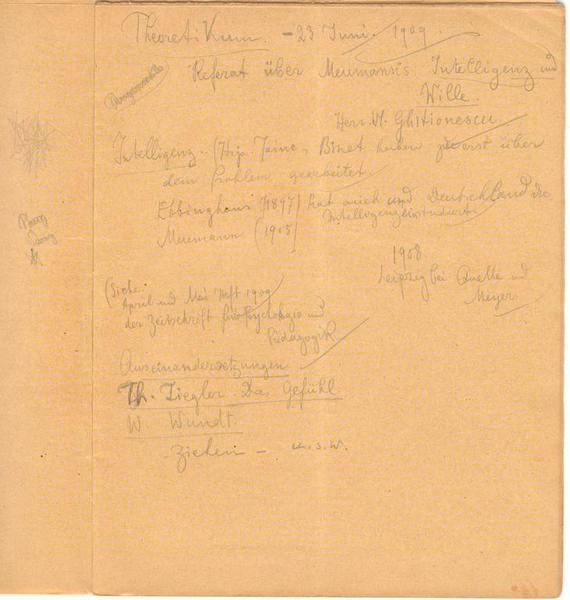 Theoretikum. – 23 Juni. 1909.
Referat über Meumann's Intelligenz und
Wille.
Herr Vl. Ghitionescu
Intelligenz. – (Hip. Taine, Binet haben zuerst über
dem Problem gearbeitet.
Ebbinghaus (1897) hat auch und Deutschland die
Intelligenz
Meumann (1905)
1908
Leipzig bei Quelle und
Meyer.
(Siehe
April und Mai Heft 1909
der Zeitschrift für Psychologie und
Pädagogik
Auseinandersetzungen
Th. Ziegler. Das Gefühl
W. Wundt.
– Ziehen – u. s. w.